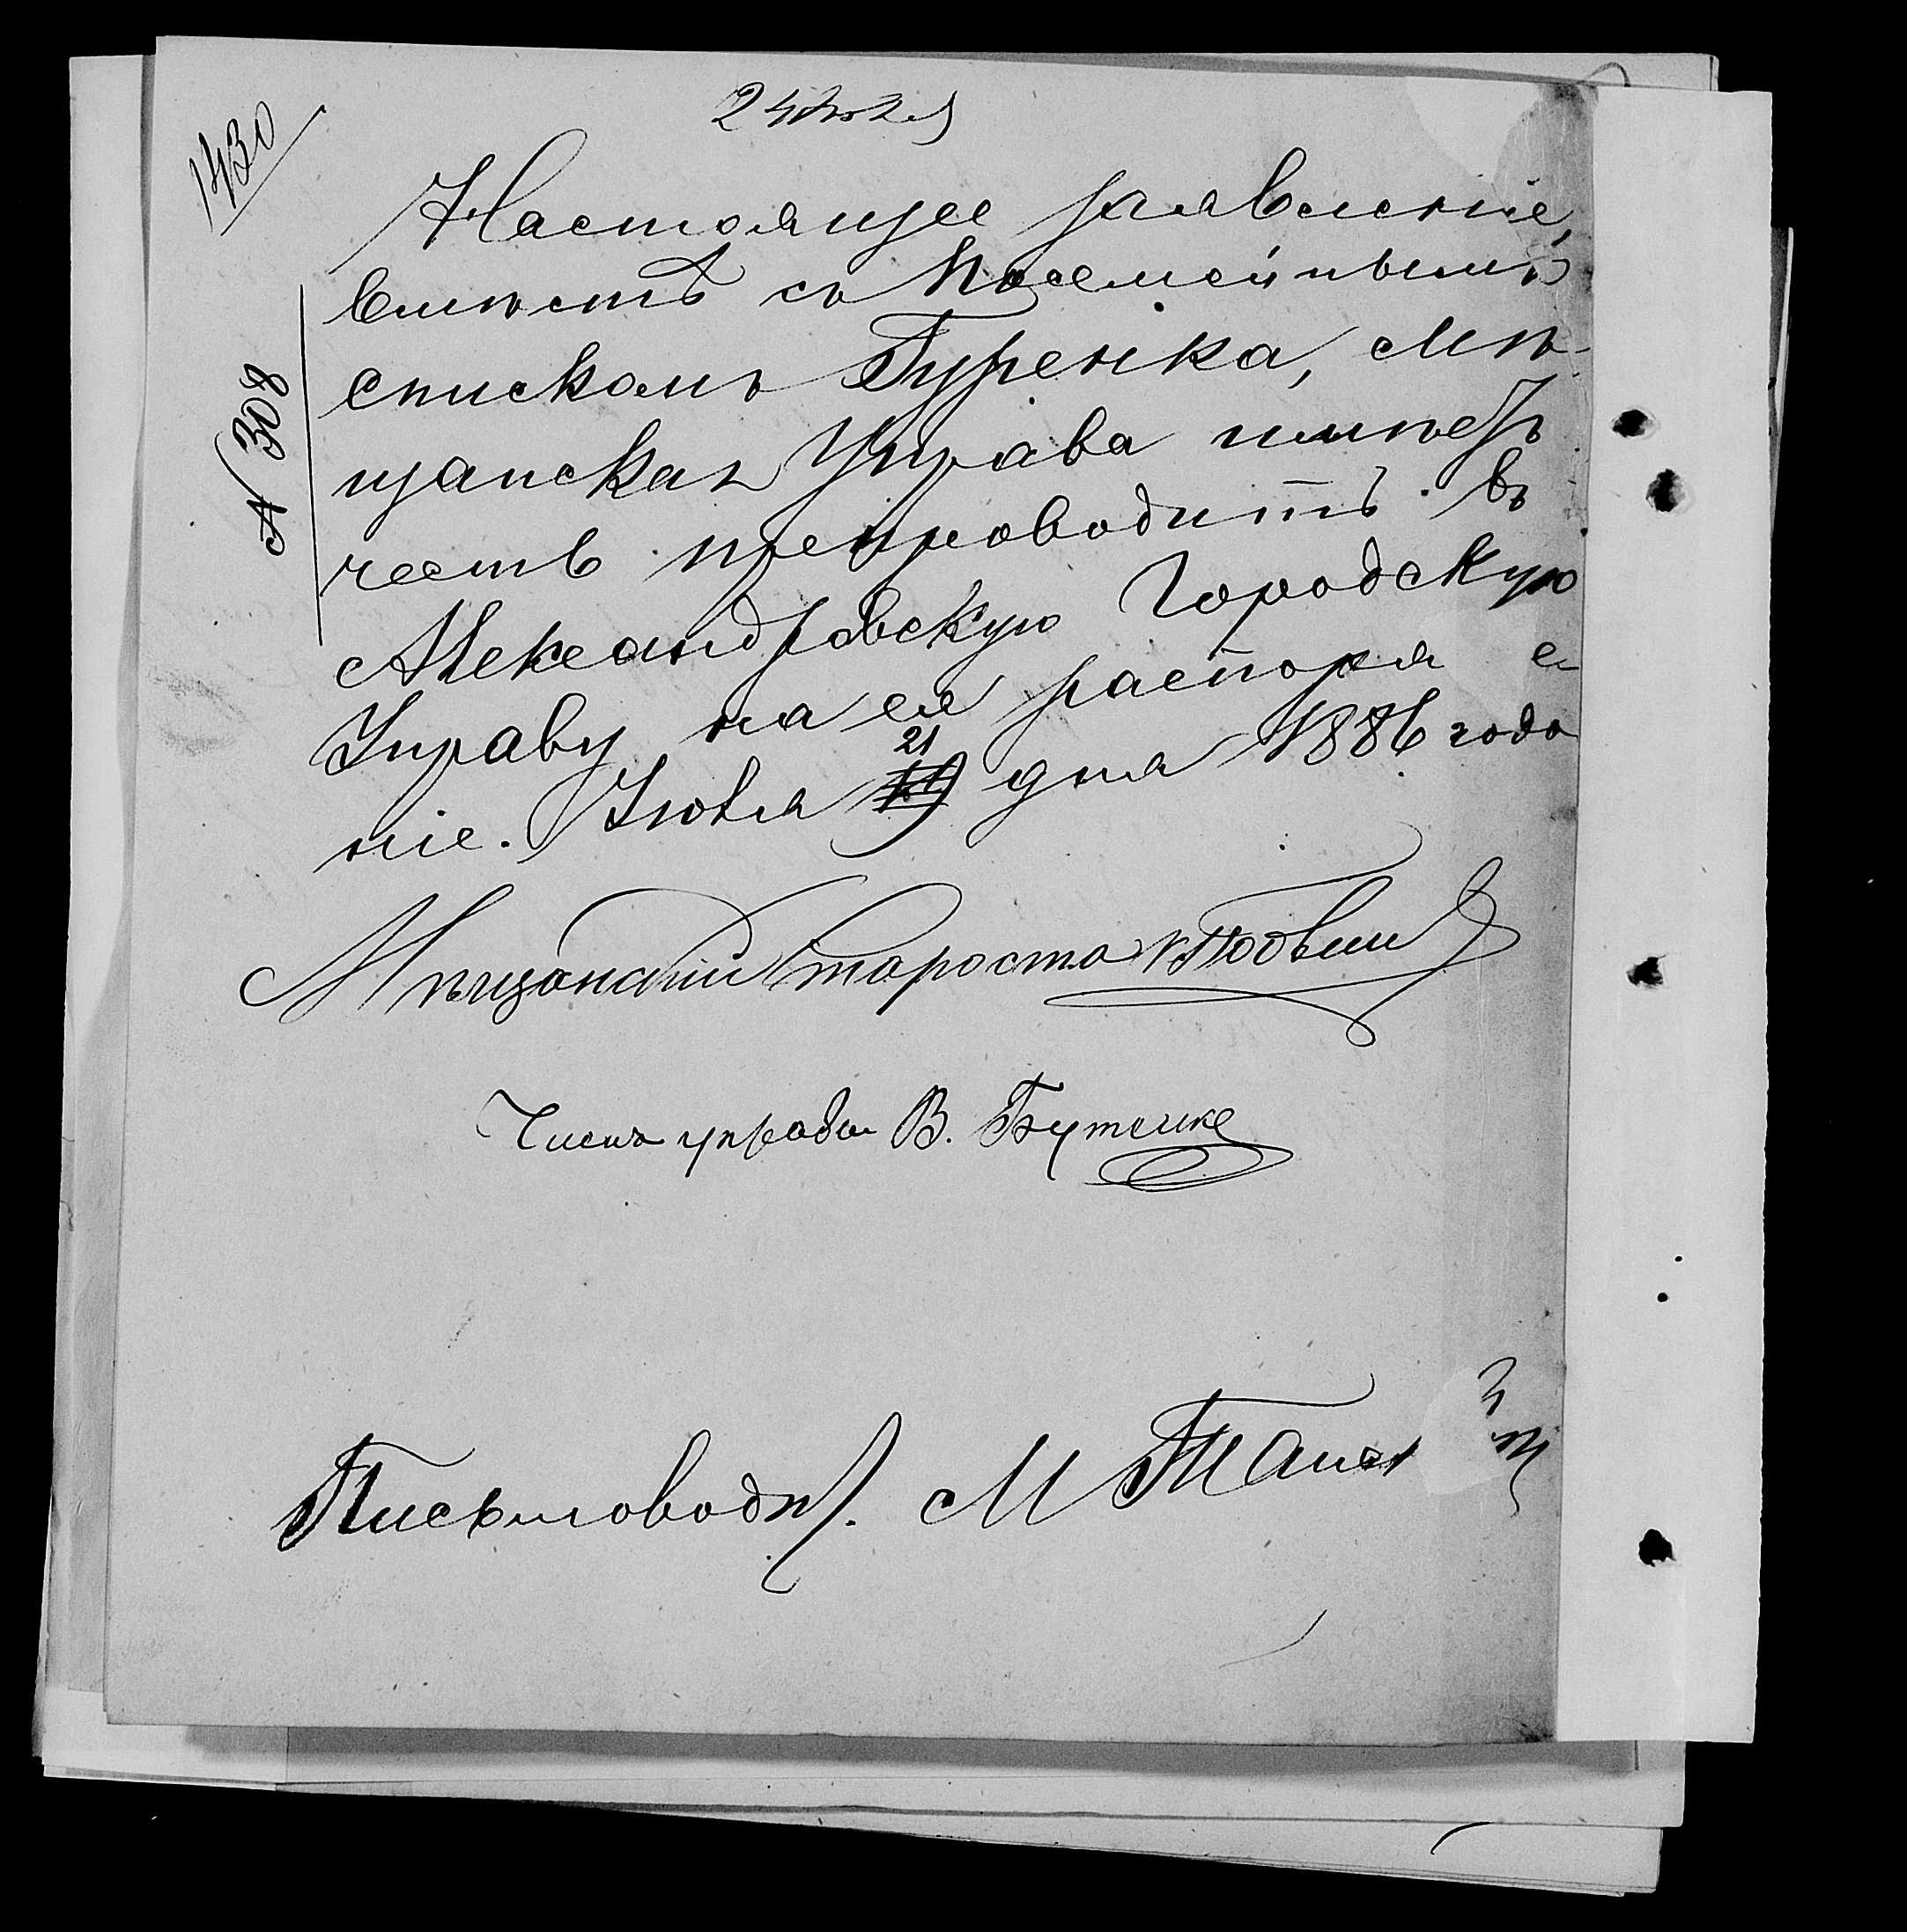 1430
24 Июля
№ 308
Настоящее заявленіе,
вмѣстѣ съ посемейнымъ
спискомъ Гуренка, Мѣ-
щанская Управа имѣетъ
честь препроводить въ
Александровскую Городскую
Управу на ея распоря е
ніе. Іюля 21 19 дня 1886 года
Мѣщанскій Староста
Членъ управы В. Бутенко
Письмоводит. М